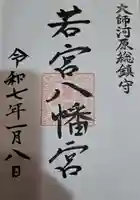 大師河原総鎮守
若宮八幡宮
令和七年一月八日